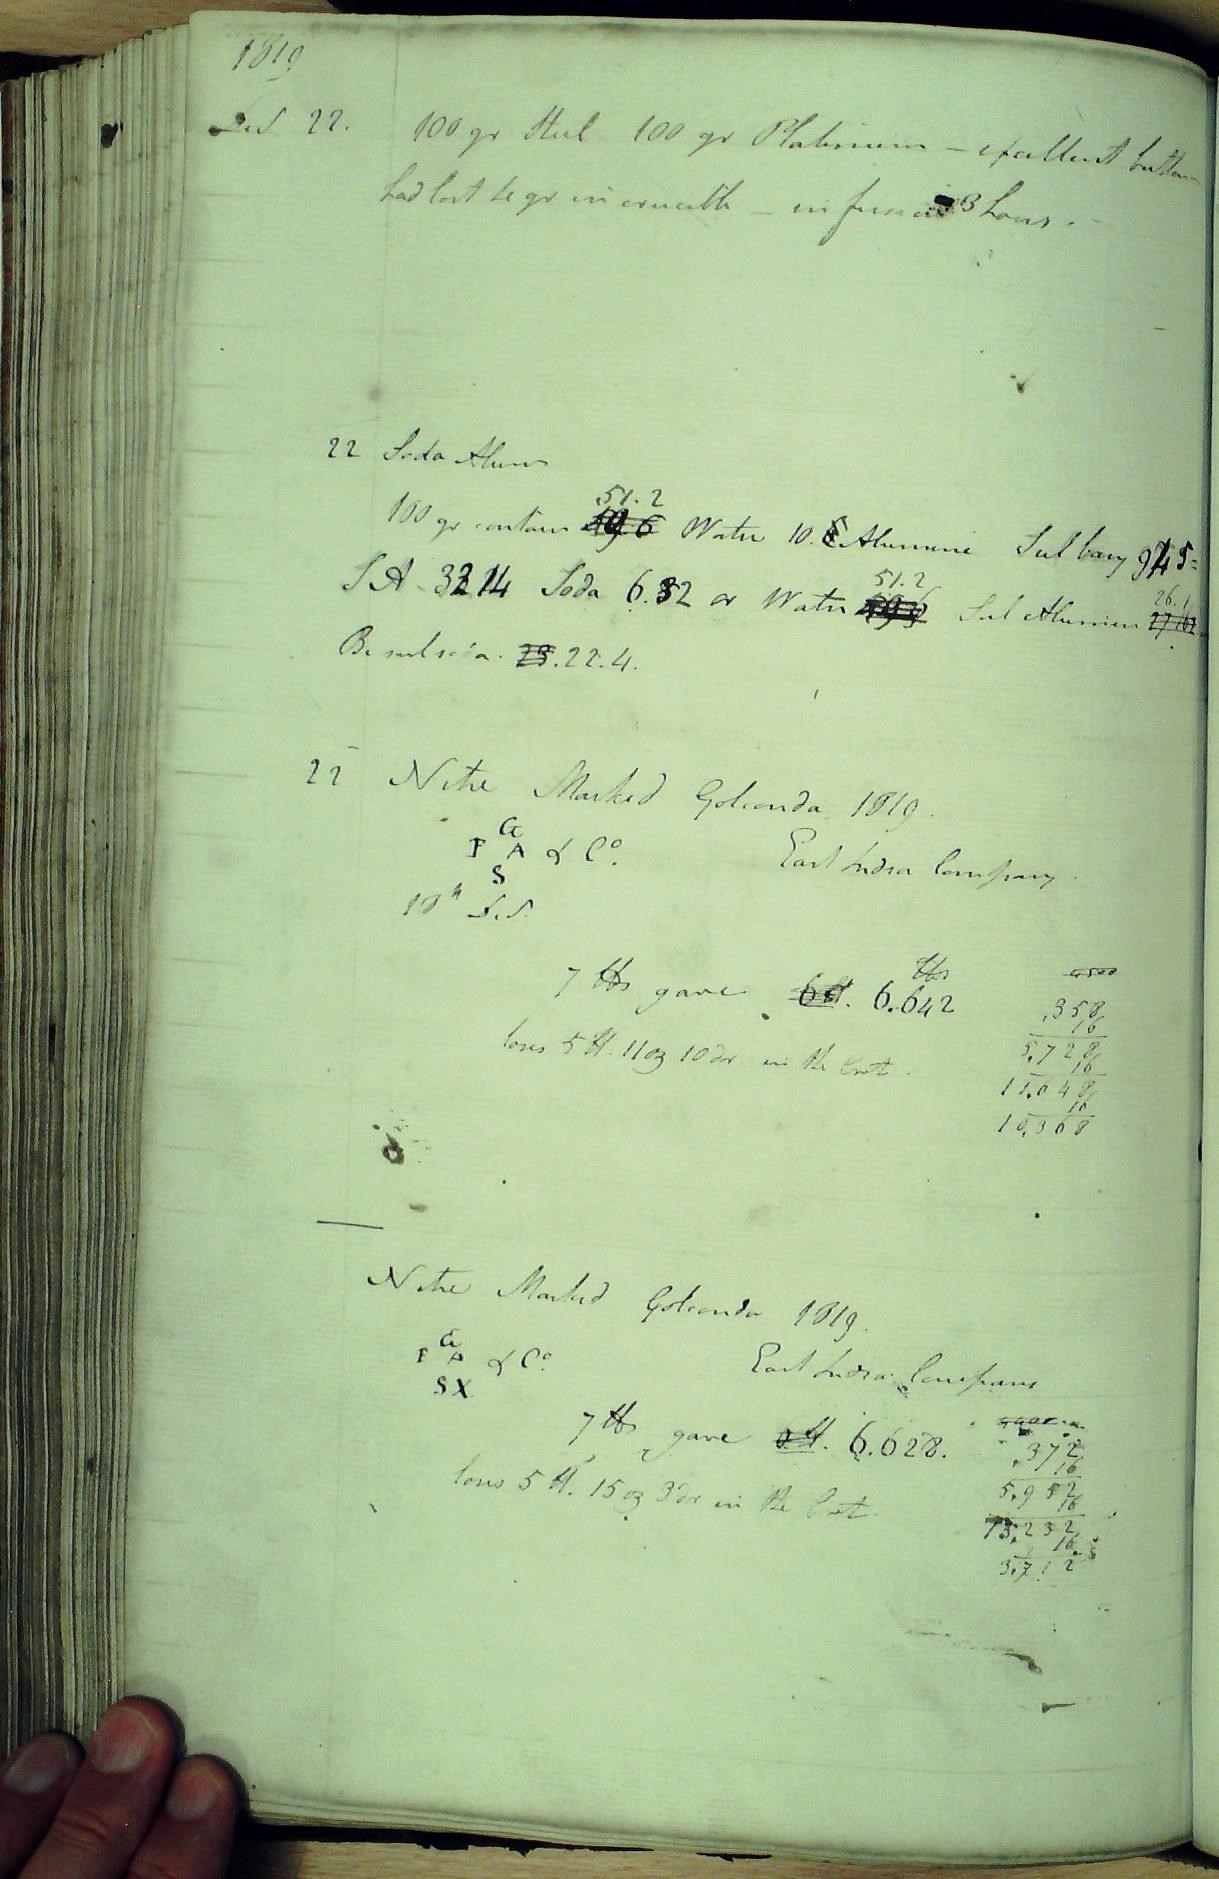 1819
Dec 22. 100 gr Steel 100 gr Platinum - excellent button
had lost 4 gr in crucible - in furnace 3 hours.
22 Soda Alum
51.2
100 gr contain 49.6 Water 10. Alumine Sul bary 94.5=
51.2
SA 32.14 Soda 6.32 or Water Sul Alumine
26.1
Bi sul soda. 22.4.
22 Nitre Marked Golconda 1819.
G
F A & Co. East India Company.
S
18th Dec.
lbs
7 lbs gave 6 lb. 6.642
.358
16
5.728
16
loses 5 lb. 11 oz 10 dr. in the Cwt.
11.648
16
10.368
Nitre Marked Golconda 1819.
G
F A & Co. East India Company
SX
7 lbs gave 6 lb. 6.628.
.372
16
5.952
16
loses 5 lb. 15 oz 3 dr in the Cwt.
15.232
16
3.712